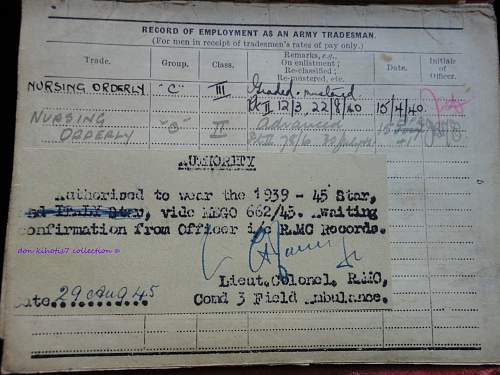 RECORD OF EMPLOYMENT AS AN ARMY TRADESMAN.
(For men in receipt of tradesmen's rates of pay only.)
Trade. Group. Class. Remarks, e.g., Date. Initials
On enlistment; of
Re-classified; Officer.
Re-mustered, etc.
NURSING ORDERLY "C" III Graded & mustered
Pt II, 12/3, 22/8/40 15/4/40
NURSING
ORDERLY "C" II advanced
Pt II 78/6
AUTHORITY
Authorised to wear the 1939 - 45 Star,
and Italy Star, vide MEGO 662/45. Awaiting
confirmation from Officer i/c RAMC Records.
don-kihotis7 collection ©
Lieut.Colonel. RAMC,
Date. 29 Aug 45 Comd 3 Field Ambulance.